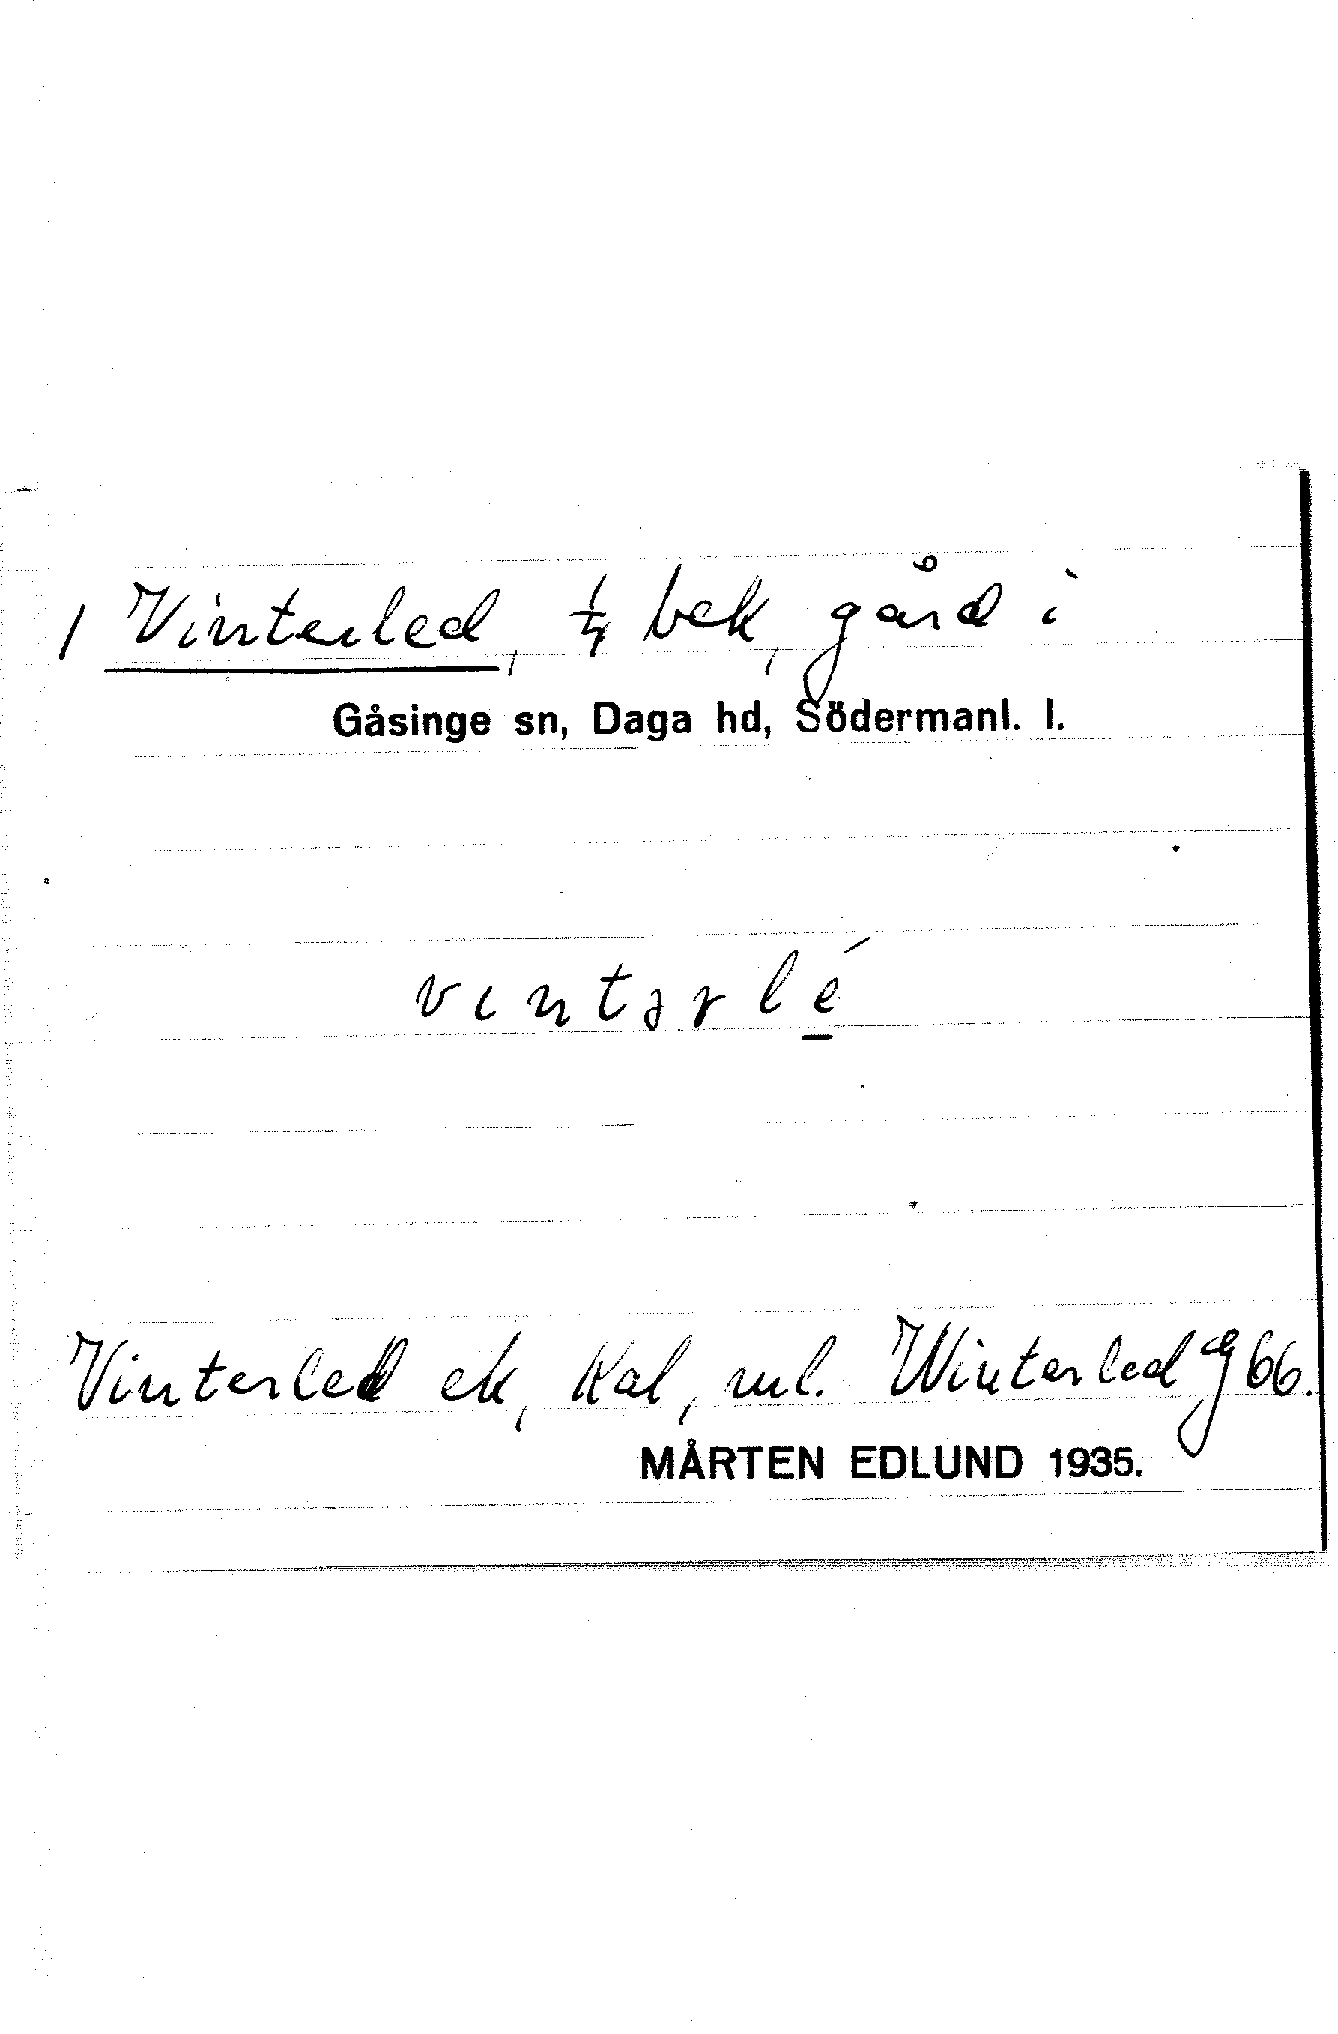 1 Vinterled, ¼ bek, gård i
Gåsinge sn, Daga hd, Södermanl. l.
vintərlé
Vinterled ek, Kal, ml. Winterled g 66.
MÅRTEN EDLUND 1935.